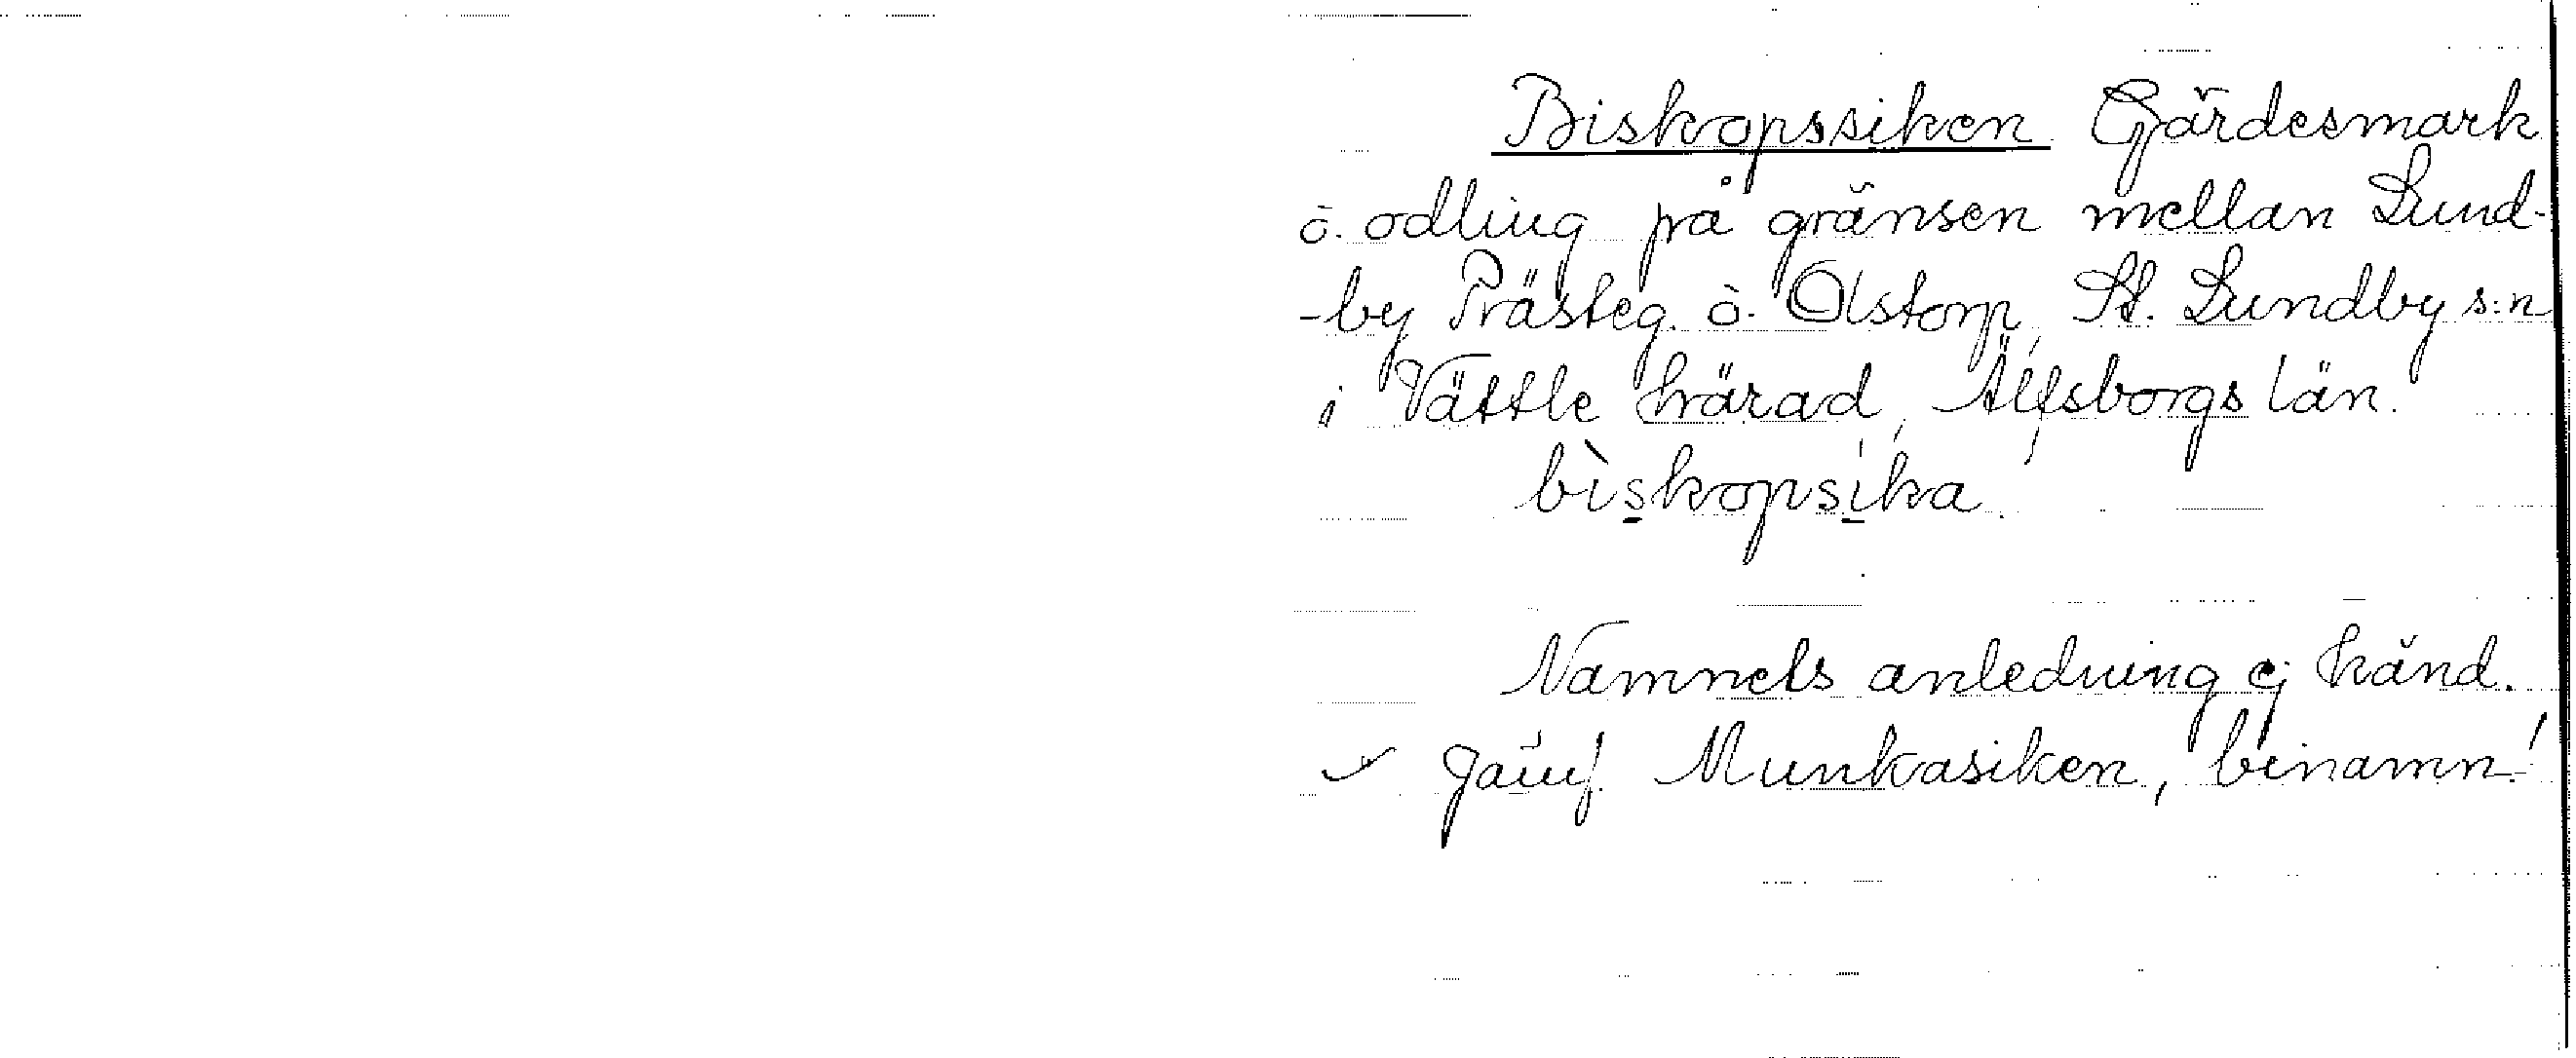 Biskopssiken Gärdesmark
o. odling på gränsen mellan Lund-
-by Prästeg. o. Olstorp, St. Lundby s:n
i Vättle härad, Älfsborgs län.
bìskopsika.
Namnets anledning ej känd.
Jämf. Munkasiken, binamn!